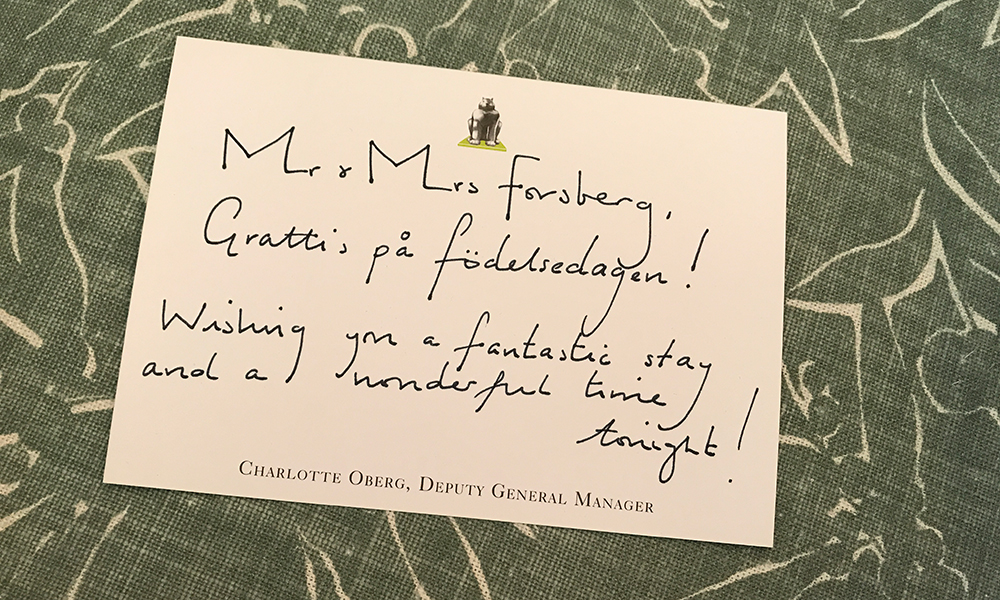 Mr & Mrs Forsberg,
Grattis på födelsedagen!
Wishing you a fantastic stay
and a wonderful time
tonight!
CHARLOTTE OBERG, DEPUTY GENERAL MANAGER